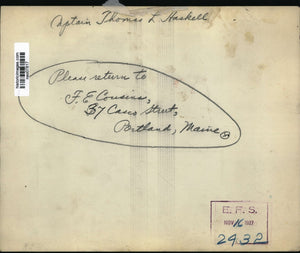 Captain Thomas L Haskell
Please return to
F. E Cousins,
37 Casco Street,
Portland, Maine
E. F. S.
NOV 16 1927
2932